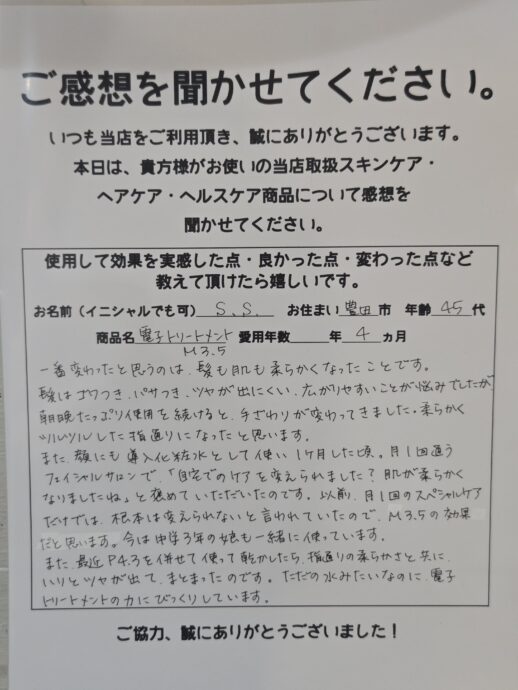 ご感想を聞かせてください。
いつも当店をご利用頂き、誠にありがとうございます。
本日は、貴方様がお使いの当店取扱スキンケア・
ヘアケア・ヘルスケア商品について感想を
聞かせてください。
使用して効果を実感した点・良かった点・変わった点など
教えて頂けたら嬉しいです。
お名前（イニシャルでも可） S.S. お住まい 豊田 市 年齢 45 代
商品名 電子トリートメント 愛用年数 年 4 ヵ月
M3.5
一番変わったと思うのは、髪も肌も柔らかくなったことです。
髪はゴワつき、パサつき、ツヤが出にくい、広がりやすいことが悩みでしたが、
朝晩たっぷり使用を続けると、手ざわりが変わってきました。柔らかく
ツルツルした指通りになったと思います。
また、顔にも導入化粧水として使い、1ヶ月した頃。月1回通う
フェイシャルサロンで「自宅でのケアを変えられました？肌が柔らかく
なりましたね」と褒めていただいたのです。以前、月1回のスペシャルケア
だけでは、根本は変えられないと言われていたので、M3.5の効果
だと思います。今は中学3年の娘も一緒に使っています。
また、最近P4.3を併せて使って乾かしたら、指通りの柔らかさと共に、
ハリとツヤが出て、まとまったのです。ただの水みたいなのに、電子
トリートメントの力にびっくりしています。
ご協力、誠にありがとうございました！